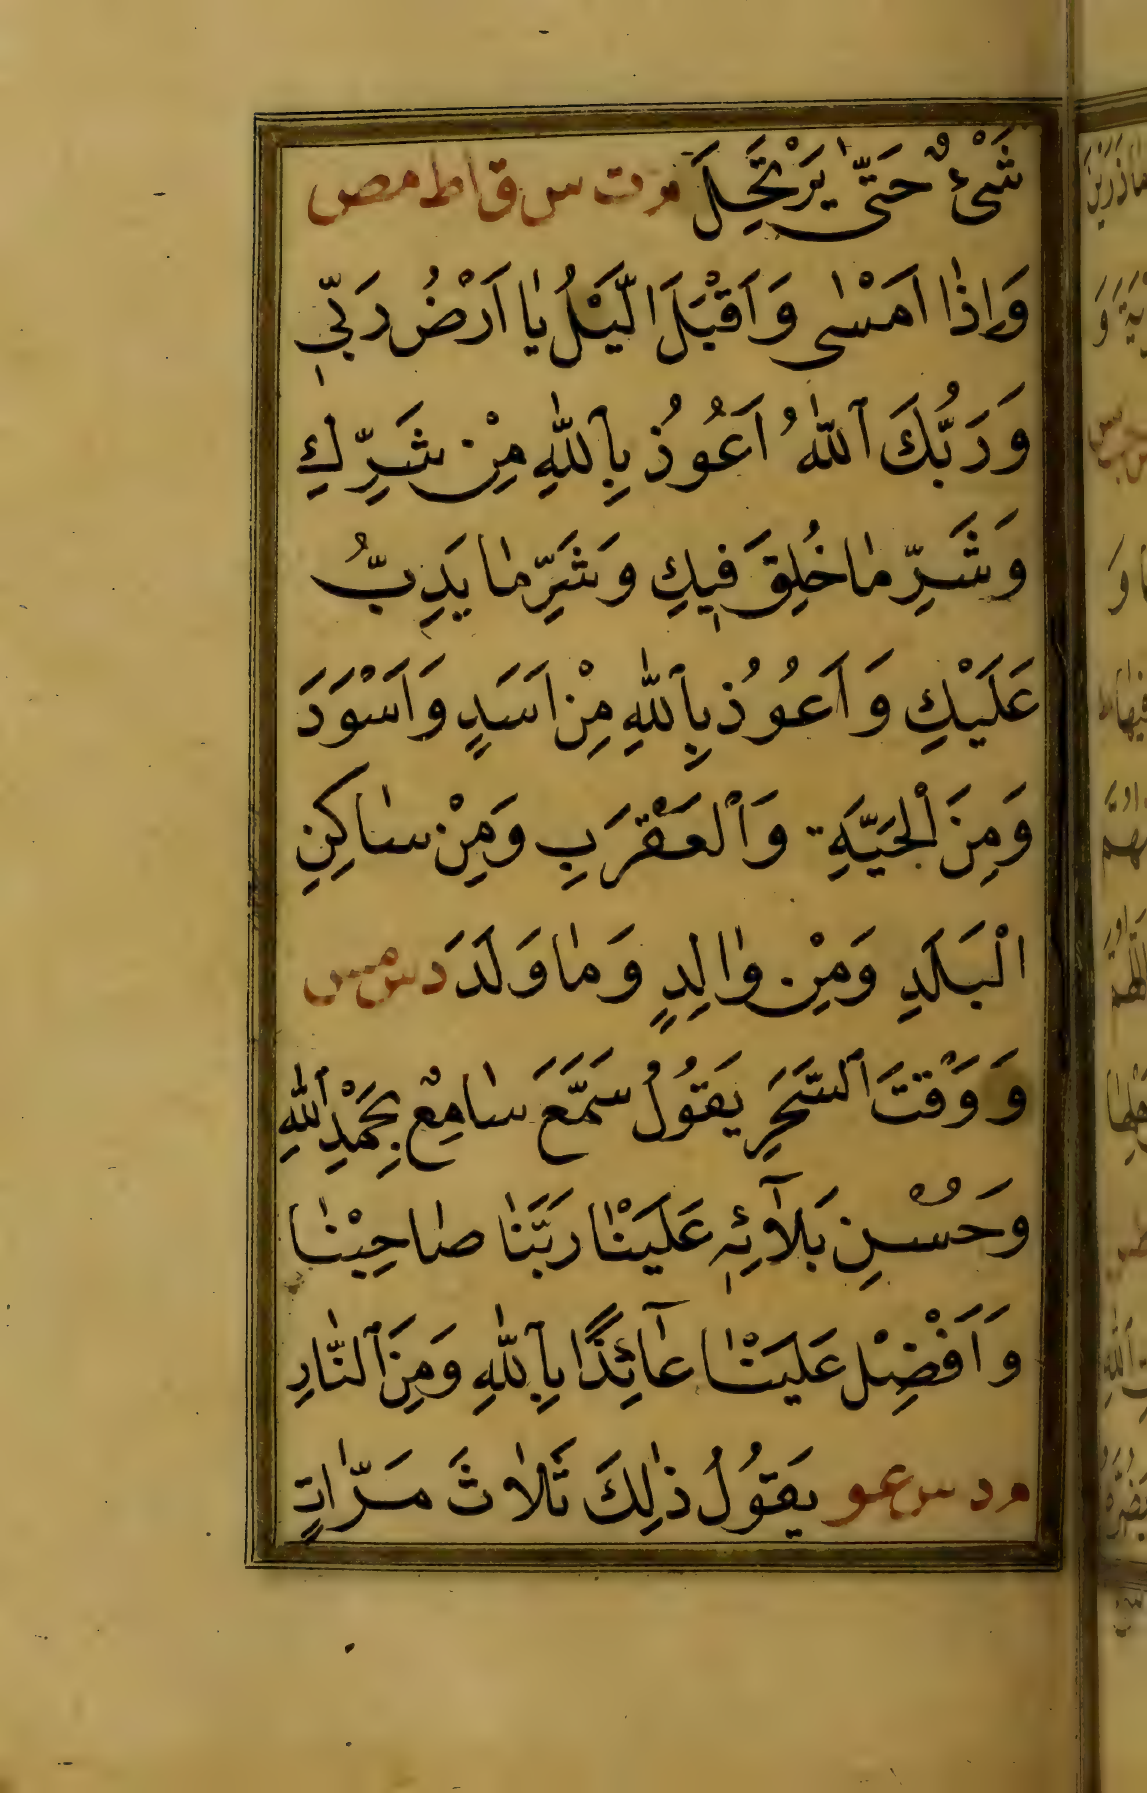 شَىْءٌ حَتّٰى يَرْتَحِلَ م ت س ق ا ط مص
وَاِذٰا اَمْسٰى وَاَقْبَلَ الَّيْلُ يٰا اَرْضُ رَبّٖى
وَرَبُّكَ ٱللّٰهُ اَعُوُذُ بِٱللّٰهِ مِنْ شَرِّكِ
وَشَرِّ مٰا خُلِقَ فٖيكِ وَشَرِّ مٰا يَدِبُّ
عَلَيْكِ وَاَعُوُذُ بِٱللّٰهِ مِنْ اَسَدٍ وَاَسْوَدَ
وَمِنَ ٱلْحَيَّةِ وَٱلْعَقْرَبِ وَمِنْ سٰاكِنِ
الْبَلَدِ وَمِنْ وٰالِدٍ وَمٰا وَلَدَ د س مس
وَوَقْتَ ٱلسَّحَرِ يَقُوُلُ سَمَّعَ سٰامِعٌ بِحَمْدِ ٱللّٰهِ
وَحُسْنِ بَلٰٓائِهٖ عَلَيْنٰا رَبَّنٰا صٰاحِبْنٰا
وَاَفْضِلْ عَلَيْنٰا عٰٓائِذًا بِٱللّٰهِ وَمِنَ ٱلنّٰارِ
م د س عو يَقُوُلُ ذٰلِكَ ثَلٰاثَ مَرّٰاتٍ